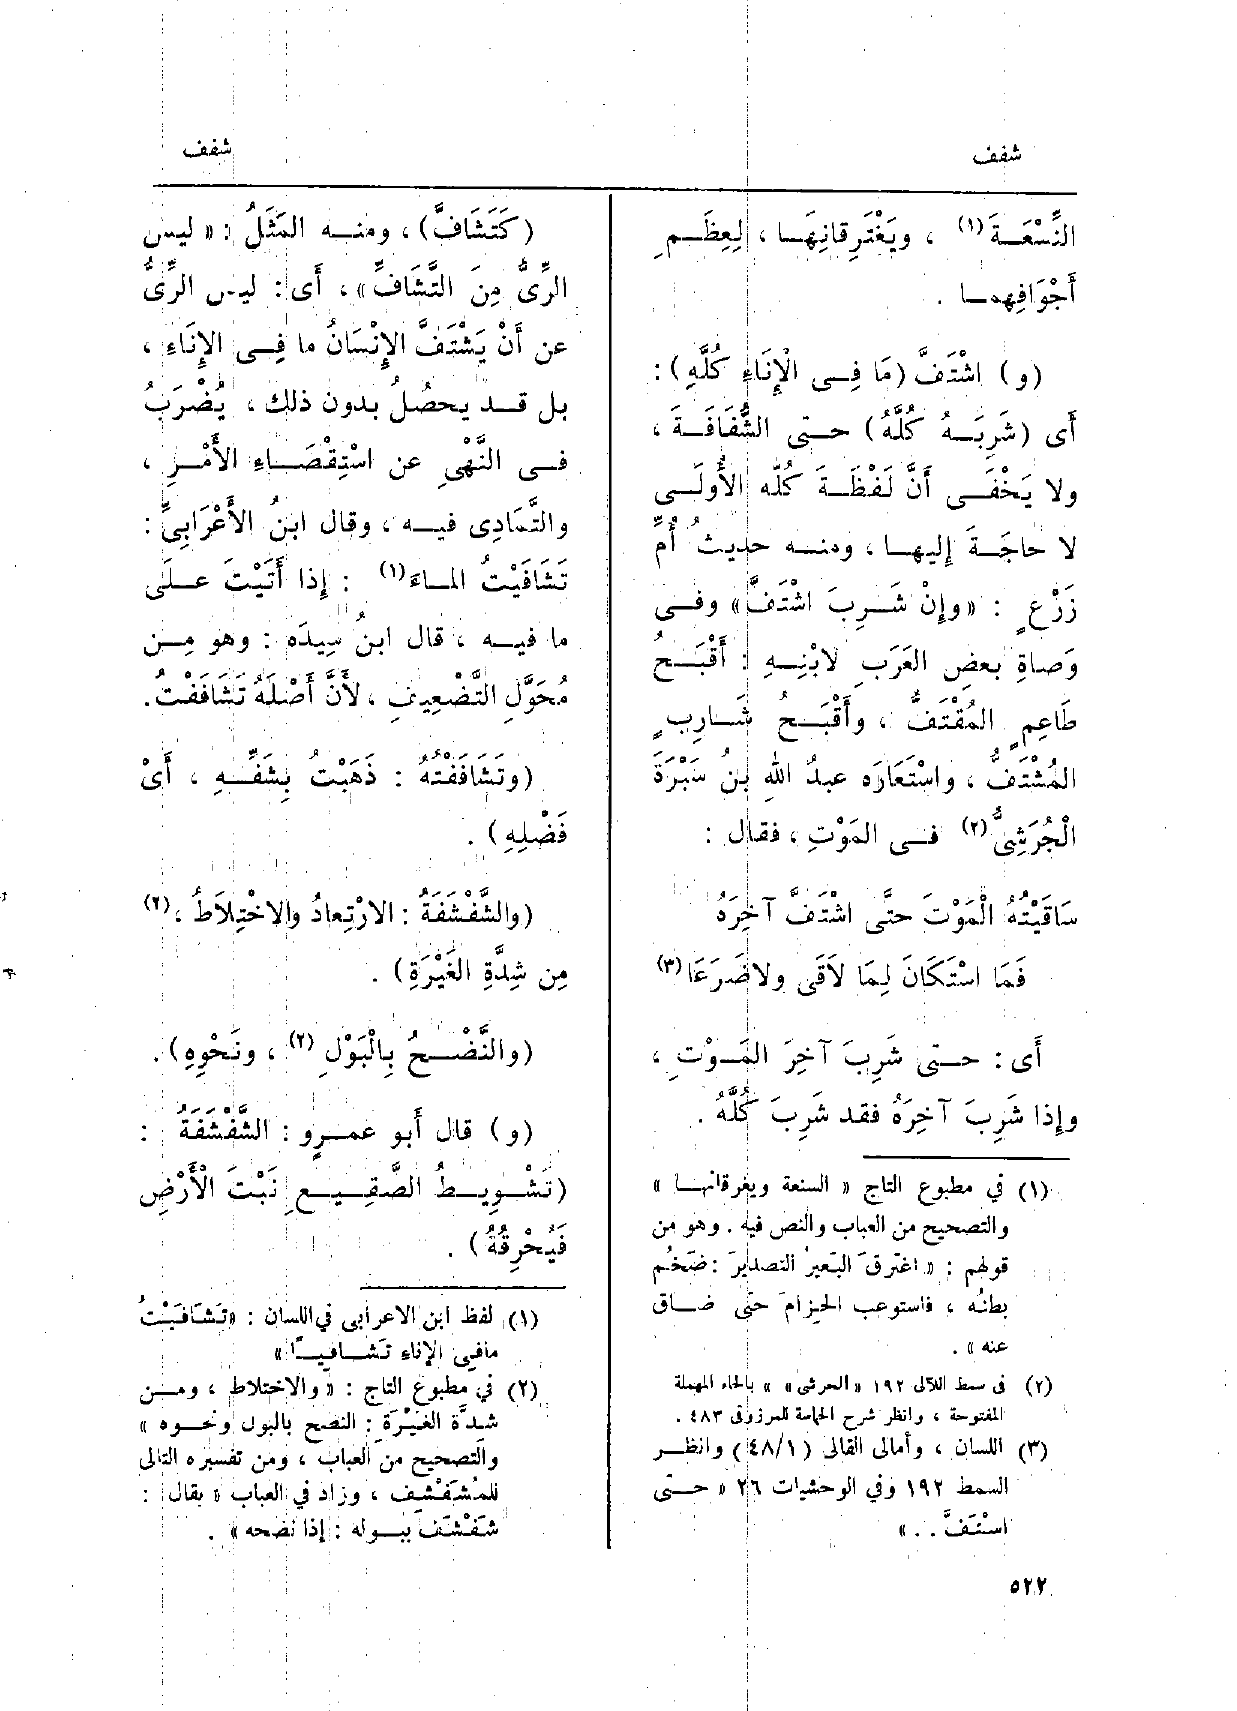 شفف
شفف
النِّسْعَةَ (١) ، ويَغْتَرِقانِهَا ، لِعِظَمِ
أَجْوَافِهِما .
(و) اشْتَفَّ (مَا فِى الْإِنَاءِ كُلَّهِ) :
أى (شَرِبَهُ كُلَّهُ) حتى الشُّفَافَةَ ،
ولا يَخْفَى أنَّ لَفْظَةَ كُلّه الأُولَى
لا حاجَةَ إليها ، ومنه حديثُ أُمِّ
زَرْعٍ : «وإنْ شَرِبَ اشْتَفَّ» وفى
وَصاةِ بعضِ العَرَبِ لابْنِهِ : أَقْبَحُ
طَاعِمٍ المُقْتَفُّ ، وأَقْبَحُ شَارِبٍ
المُشْتَفُّ ، واسْتَعَارَه عبدُ اللهِ بنُ سَبْرَةَ
الْجُرَشِىُّ (٢) فى المَوْتِ ، فقال :
سَاقَيْتُهُ الْمَوْتَ حتَّى اشْتَفَّ آخِرَهُ
فَمَا اسْتَكَانَ لِمَا لاَقَى ولا ضَرَعَا (٣)
أى : حتى شَرِبَ آخِرَ المَوْتِ ،
وإذا شَرِبَ آخِرَهُ فقد شَرِبَ كُلَّهُ .
(١) في مطبوع التاج « السنعة ويغرقانها »
والتصحيح من العباب والنص فيه . وهو من
قولهم : « اغترق البَعيرُ التصديرَ : ضَخُم
بطنُه ، فاستوعب الحِزامَ حتى ضاق
عنه » .
(٢) فى سمط اللآلى ١٩٢ «الحرشى» » بالحاء المهملة
المفتوحة ، وانظر شرح الحماسة للمرزوقى ٤٨٣ .
(٣) اللسان ، وأمالى القالى (٤٨/١) وانظر
السمط ١٩٢ وفي الوحشيات ٢٦ « حتى
استَفَّ . . »
٥٢٢
(كَتَشَافَّ) ، ومنه المَثَلُ : « ليس
الرِّىُّ مِنَ التَّشَافِّ » ، أى : ليس الرِّىُّ
عن أَنْ يَشْتَفَّ الإِنْسَانُ ما فِى الإِنَاءِ ،
بل قد يحصُلُ بدون ذلك ، يُضْرَبُ
فى النَّهْىِ عن اسْتِقْصَاءِ الأَمْرِ ،
والتَّمَادِى فيه ، وقال ابنُ الأَعْرَابِىِّ :
تَشَافَيْتُ الماءَ (١) : إذا أَتَيْتَ علَى
ما فيه ، قال ابنُ سِيدَه : وهو مِن
مُحَوَّلِ التَّضْعِيفِ ، لأَنَّ أَصْلَهُ تَشَافَفْتُ .
(وتَشَافَفْتُهُ : ذَهَبْتُ بِشَفِّهِ ، أىْ
فَضْلِهِ) .
(والشَّفْشَفَةُ : الارْتِعادُ والاخْتِلاطُ ، (٢)
مِن شِدَّةِ الغَيْرَةِ) .
(والنَّضْحُ بِالْبَوْلِ (٢) ، ونَحْوِهِ) .
(و) قال أَبو عمرٍو : الشَّفْشَفَةُ :
(تَشْوِيطُ الصَّقِيعِ نَبْتَ الْأَرْضِ
فَيُحْرِقُهُ) .
(١) لفظ ابن الاعرابى في اللسان : «تَشَافَيْتُ
مافى الإناء تَشَافِيًا »
(٢) في مطبوع التاج : « والاختلاط ، ومن
شدَّة الغَيْرَةِ : النضح بالبول ونحوه »
والتصحيح من العباب ، ومن تفسيره التالى
للمُشَفْشِف ، وزاد في العباب « يقال :
شَفْشَفَ ببوله : إذا نضحه » .